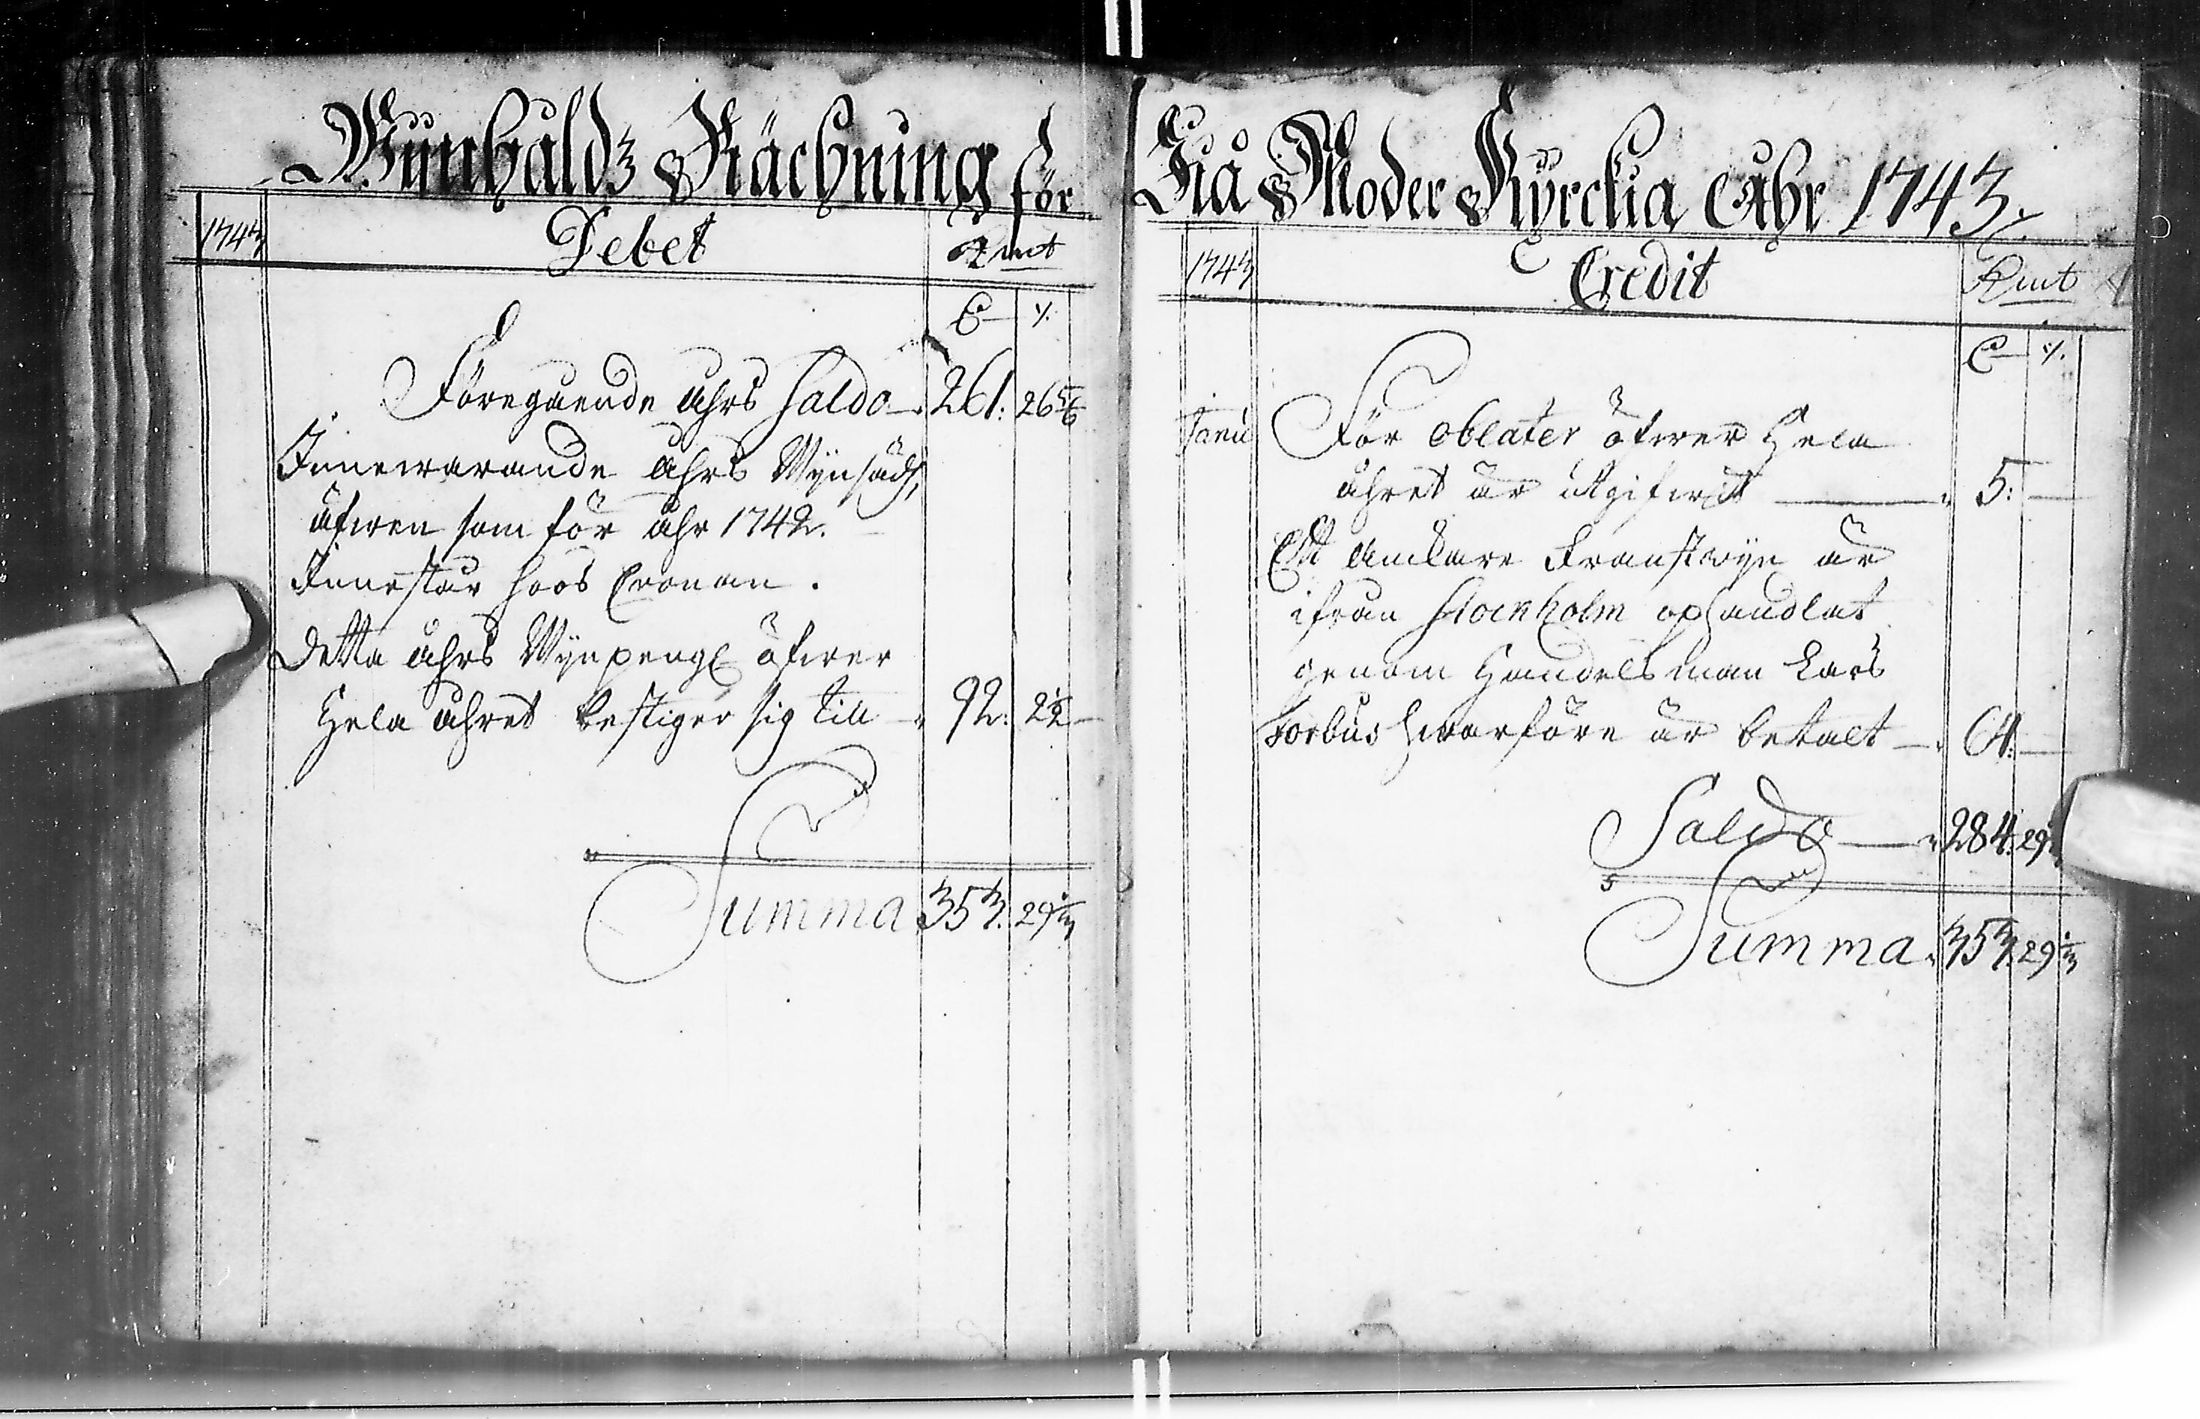 Wijnhåldz Rächning för
1743 Debet Kmt
Föregående åhrs Saldo 261: 26 5/6
Innewarande åhrs Wijnsäd,
äfwen som för åhr 1742.
Innestår hoos Cronan.
Detta åhrs Wijnpeng öfwer
Hela åhret bestiger sig till 92: 2 1/2
Summa 353. 29 1/3
Moder Kyrckia Åhr 1743.
1743 Credit Kmt
Janu För oblater öfwer Hela
åhret är utgifwit 5:
Ett Anckare Franstwijn är
ifrån Stockholm ophandlat
genom Handelsman Lars
Forbus hwarföre är betalt 64:
Saldo 284: 29
Summa 353. 29 1/3